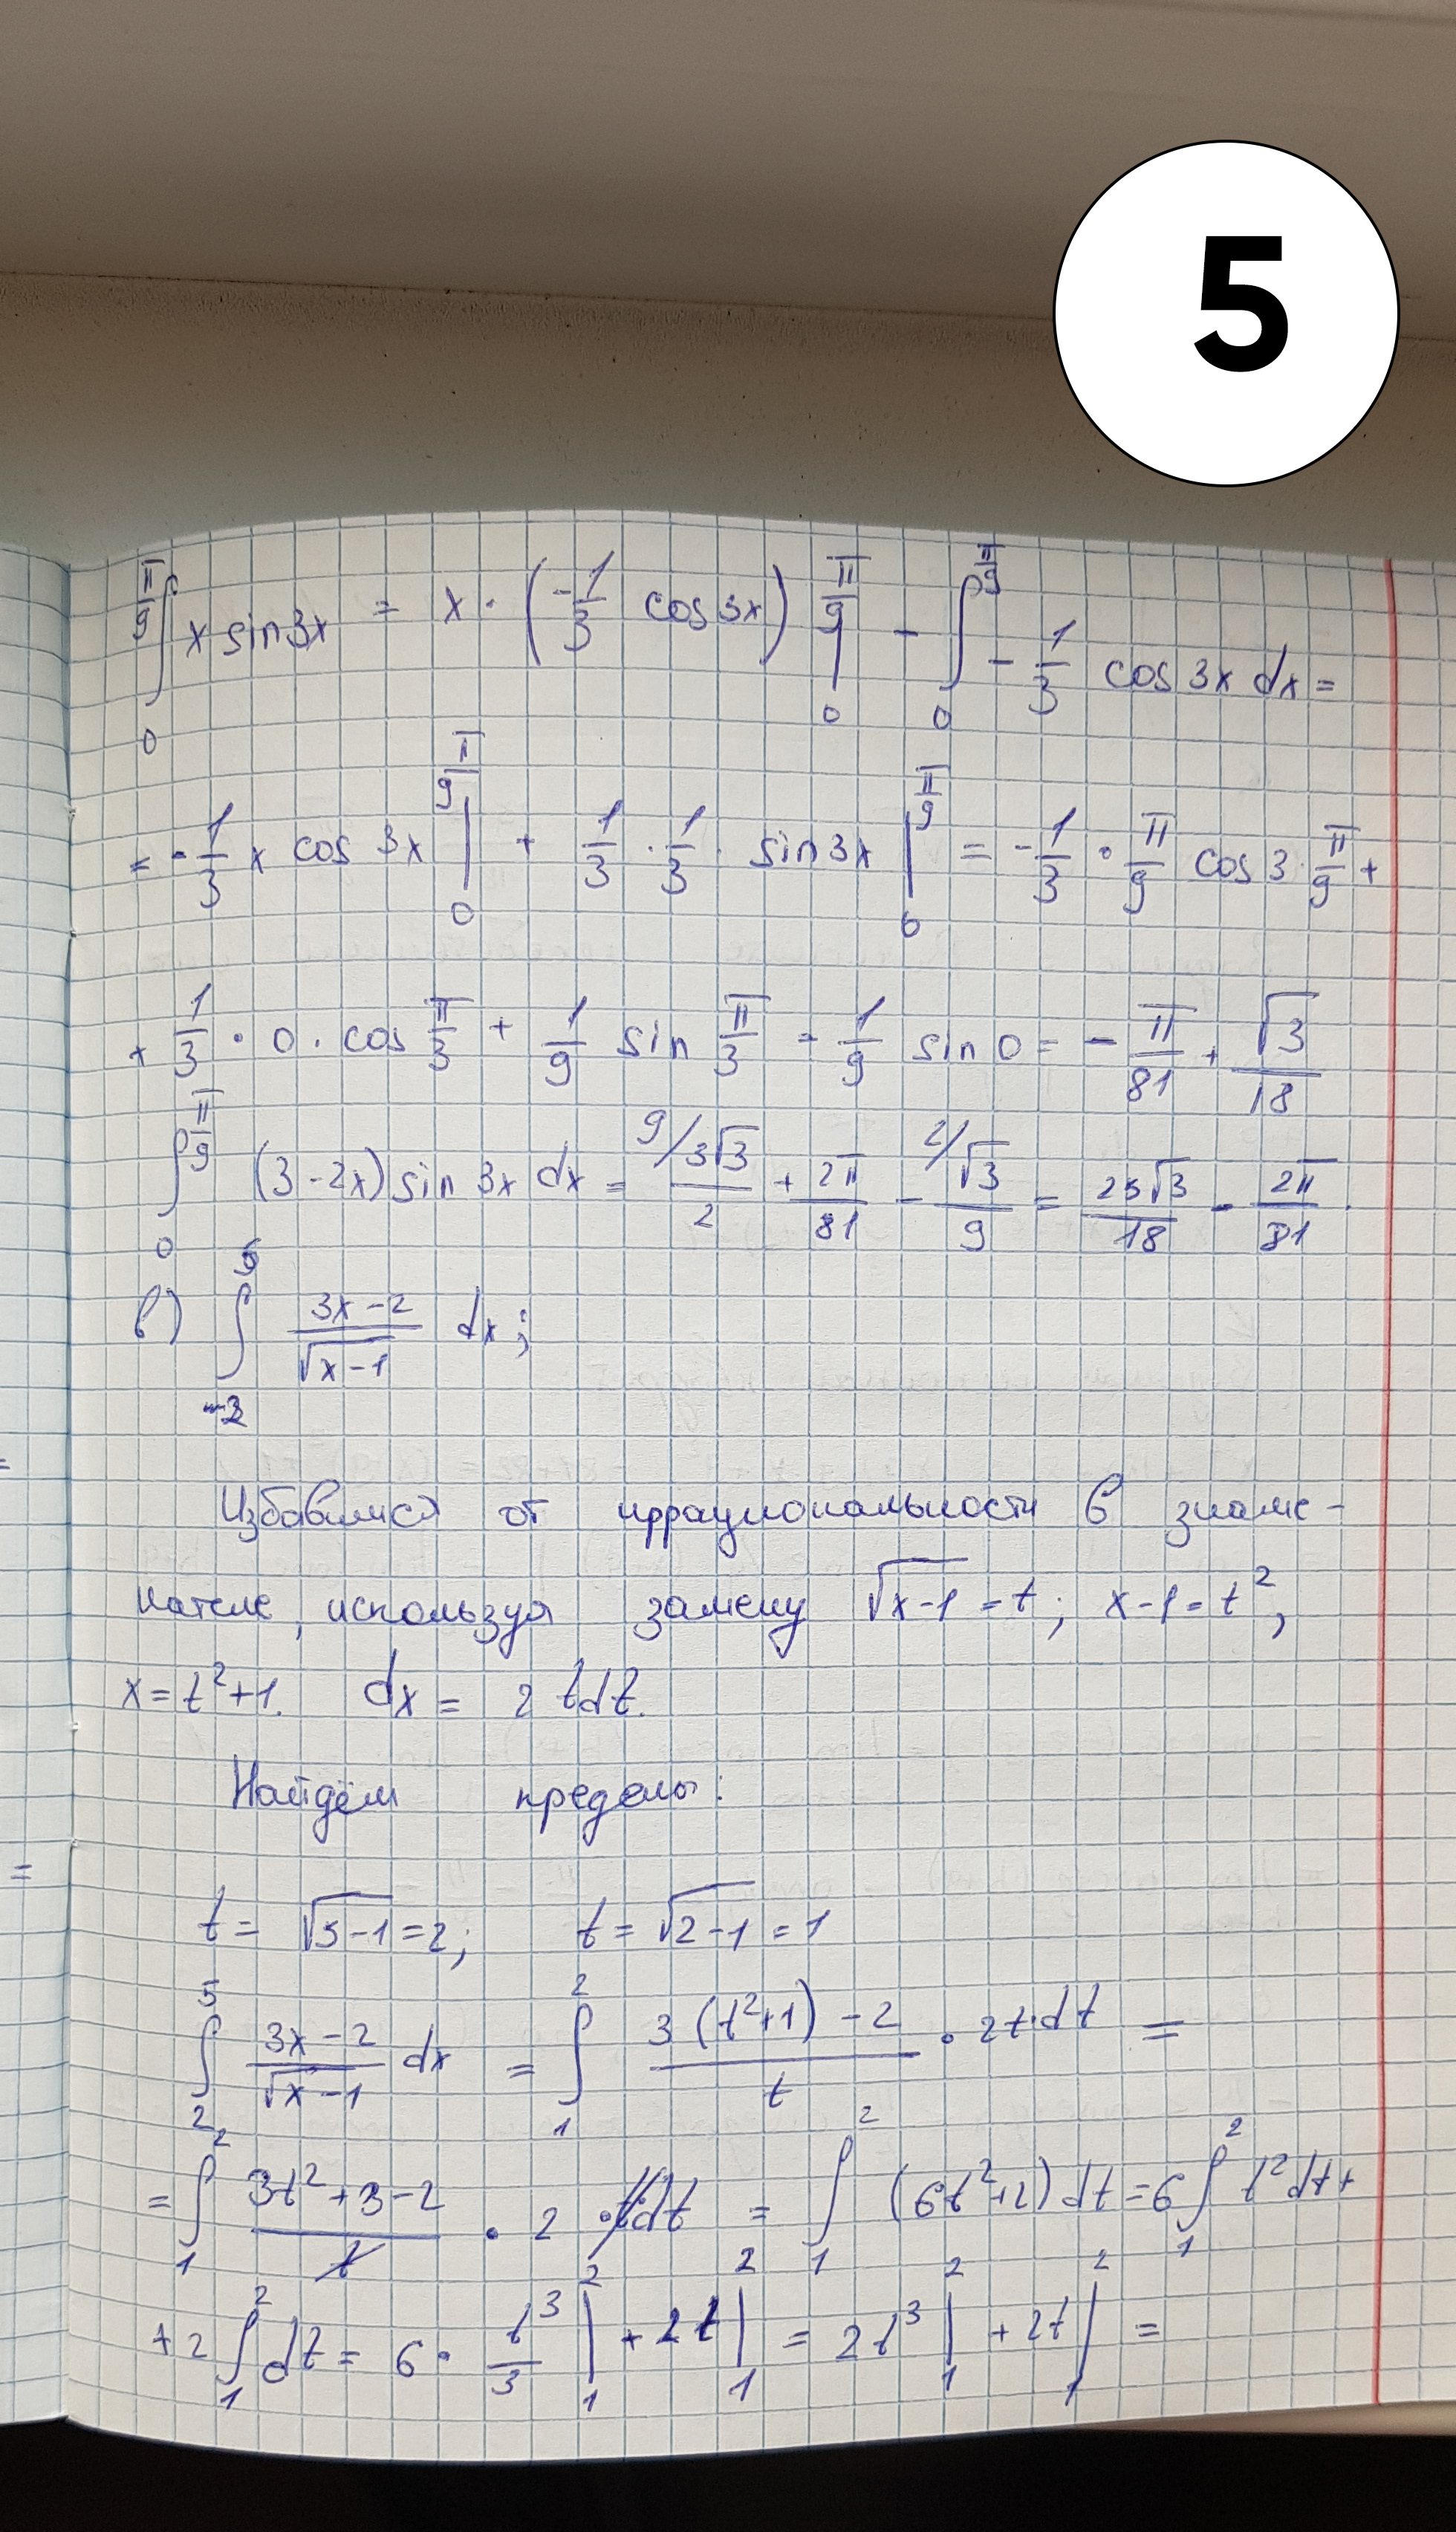 5
∫₀^(π/9) x sin3x = x · (-1/3 cos3x) |₀^(π/9) - ∫₀^(π/9) - 1/3 cos 3x dx =
= - 1/3 x cos 3x |₀^(π/9) + 1/3 · 1/3 · sin 3x |₀^(π/9) = - 1/3 · π/9 cos 3 · π/9 +
+ 1/3 · 0 · cos π/3 + 1/9 sin π/3 - 1/9 sin 0 = - π/81 + √3/18
∫₀^(π/9) (3-2x) sin 3x dx = ⁹⁄ 3√3/2 + 2π/81 - ²⁄ √3/9 = 25√3/18 - 2π/81 .
в) ∫₋₂^5 (3x-2)/√(x-1) dx;
Избавимся от иррациональности в знаме-
нателе, используя замену √(x-1) = t; x-1 = t²,
x = t²+1. dx = 2 tdt.
Найдём пределы:
t = √(5-1) = 2; t = √(2-1) = 1
∫₂^5 (3x-2)/√(x-1) dx = ∫₁^2 (3(t²+1) - 2)/t · 2t·dt =
= ∫₁^2 (3t²+3-2)/t · 2 · tdt = ∫₁^2 (6t²+2) dt = 6 ∫₁^2 t² dt +
+ 2 ∫₁^2 dt = 6 · t³/3 |₁^2 + 2t |₁^2 = 2t³ |₁^2 + 2t |₁^2 =
=
=